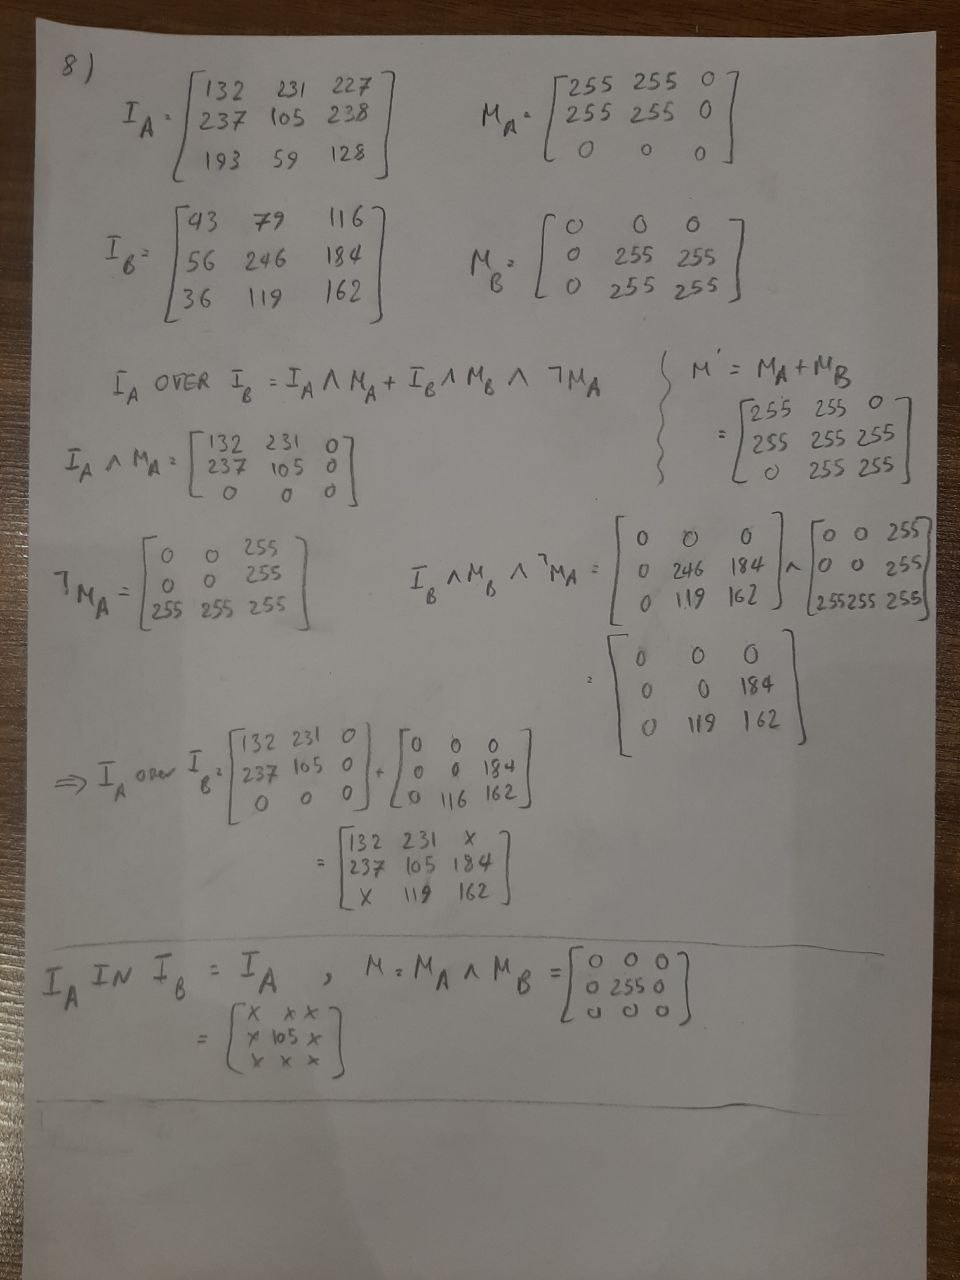 8)
I_A = [132 231 227
237 105 238
193 59 128]
M_A = [255 255 0
255 255 0
0 0 0]
I_B = [43 79 116
56 246 184
36 119 162]
M_B = [0 0 0
0 255 255
0 255 255]
I_A OVER I_B = I_A ∧ M_A + I_B ∧ M_B ∧ ¬M_A
M' = M_A + M_B
= [255 255 0
255 255 255
0 255 255]
I_A ∧ M_A = [132 231 0
237 105 0
0 0 0]
¬M_A = [0 0 255
0 0 255
255 255 255]
I_B ∧ M_B ∧ ¬M_A = [0 0 0
0 246 184
0 119 162] ∧ [0 0 255
0 0 255
255 255 255]
= [0 0 0
0 0 184
0 119 162]
⇒ I_A over I_B = [132 231 0
237 105 0
0 0 0] + [0 0 0
0 0 184
0 116 162]
= [132 231 x
237 105 184
x 119 162]
I_A IN I_B = I_A , M = M_A ∧ M_B = [0 0 0
0 255 0
0 0 0]
= [x x x
x 105 x
x x x]